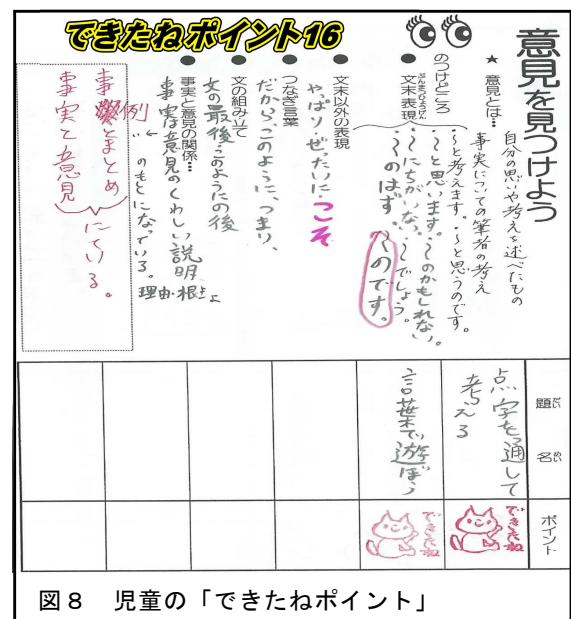 できたねポイント16
意見を見つけよう
★ 意見とは…
自分の思いや考えを述べたもの
事実についての筆者の考え
のつけどころ
● 文末表現
ぶんまつひょうげん
・〜と考えます。・〜と思うのです。
・〜と思います。・〜のかもしれない。
・〜にちがいない。・〜でしょう。
・〜のはず。〜のです。
● 文末以外の表現
やっぱり・ぜったいに こそ
● つなぎ言葉
だから、このように、つまり、
● 文の組み立て
文の最後・このようにの後
● 事実と意見の関係…
事実は意見のくわしい説明
理由・根きょ
のもとになっている。
事例とまとめ
事実と意見
にている。
題名
だいめい
ポイント
点字を通して
考える
できたね
言葉で遊ぼう
できたね
図8 児童の「できたねポイント」